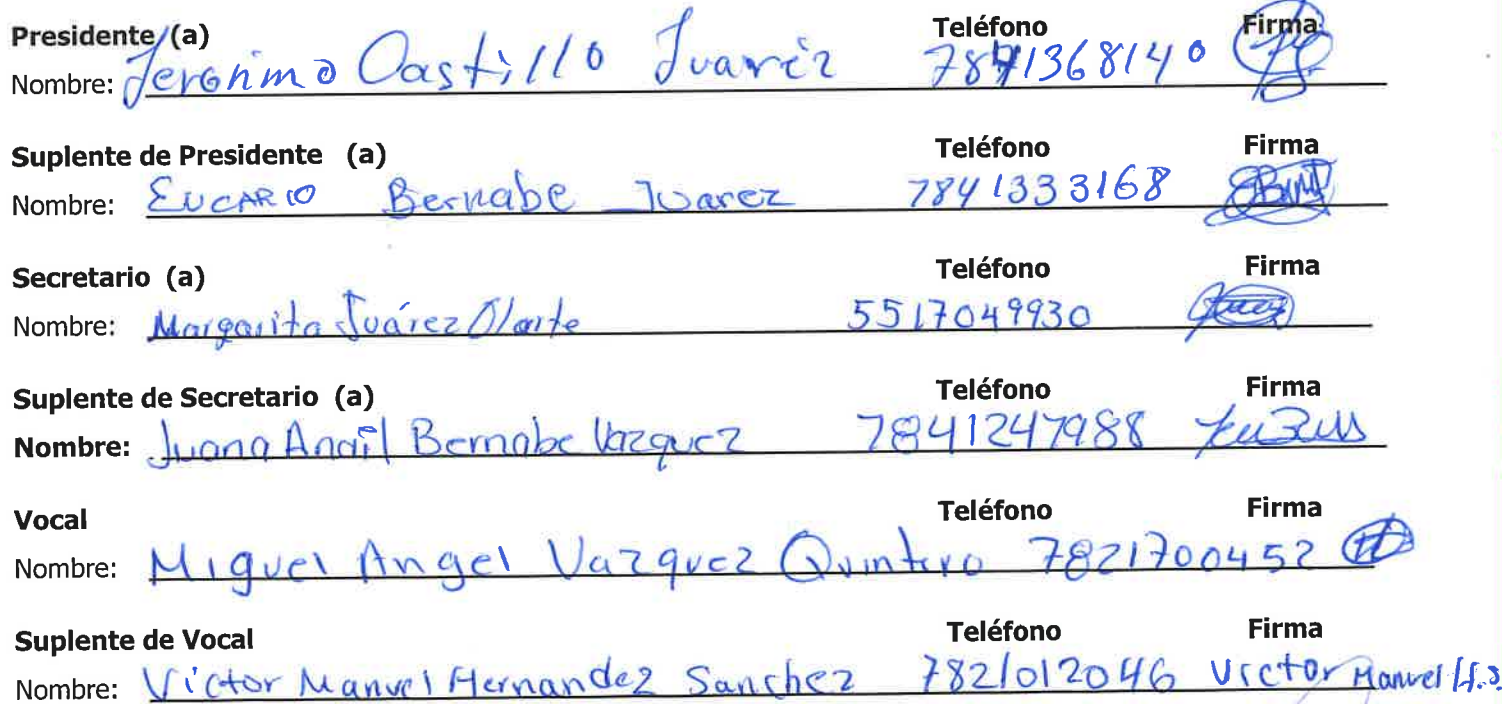 Presidente (a) Teléfono Firma
Nombre: Jerónimo Castillo Juaréz 7841368140
Suplente de Presidente (a) Teléfono Firma
Nombre: EUCARIO Bernabe Juarez 7841333168
Secretario (a) Teléfono Firma
Nombre: Margarita Juárez Olarte 5517049930
Suplente de Secretario (a) Teléfono Firma
Nombre: Juana Anail Bernabe Vazquez 7841247988
Vocal Teléfono Firma
Nombre: Miguel Angel Vazquez Quintero 7821700452
Suplente de Vocal Teléfono Firma
Nombre: Victor Manuel Hernandez Sanchez 7821012046 Victor Manuel H.S.